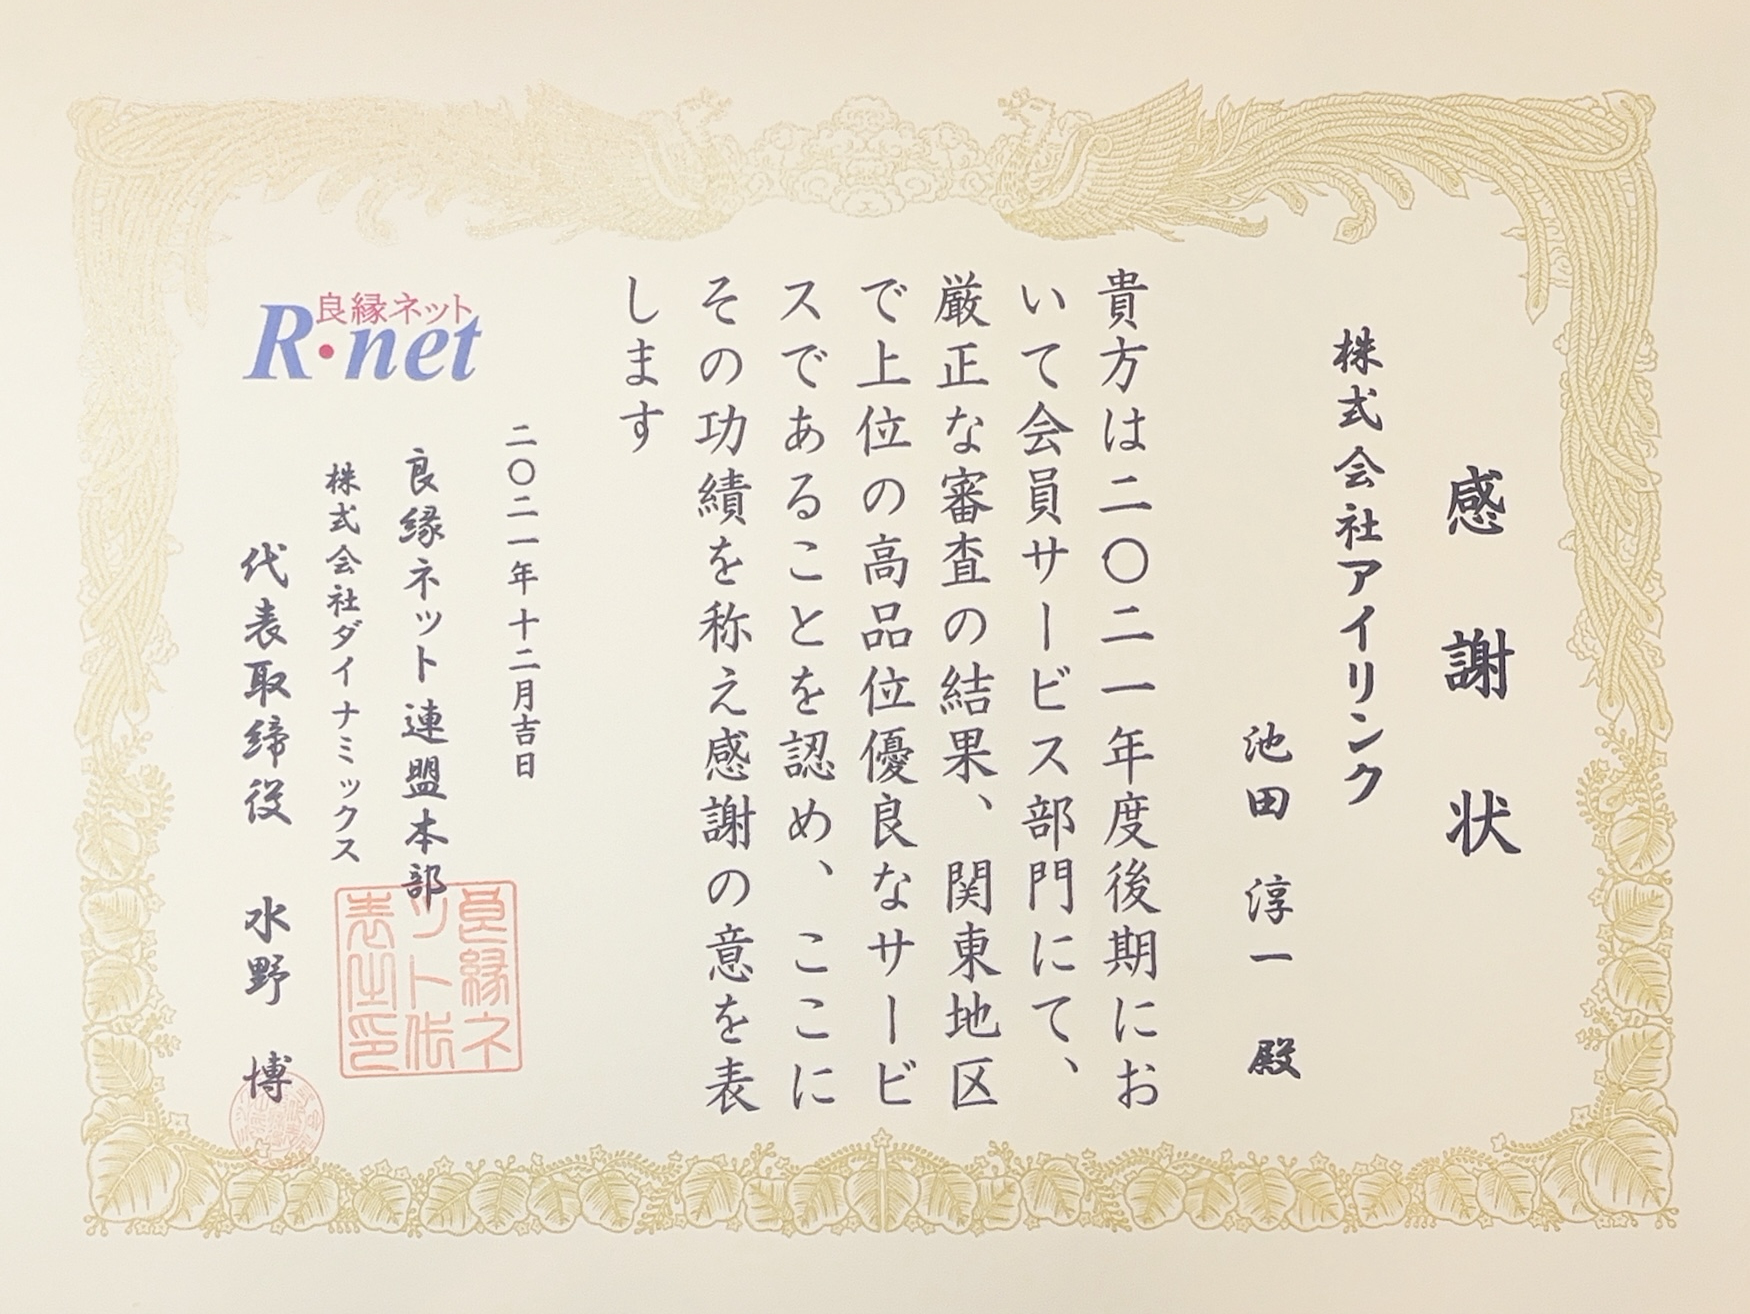 感謝状
株式会社アイリンク
池田 淳一 殿
貴方は二〇二一年度後期にお
いて会員サービス部門にて、
厳正な審査の結果、関東地区
で上位の高品位優良なサービ
スであることを認め、ここに
その功績を称え感謝の意を表
します
二〇二一年十二月吉日
良縁ネット
R・net
良縁ネット連盟本部
株式会社ダイナミックス
代表取締役 水野 博
良縁ネ
ット代
表之印